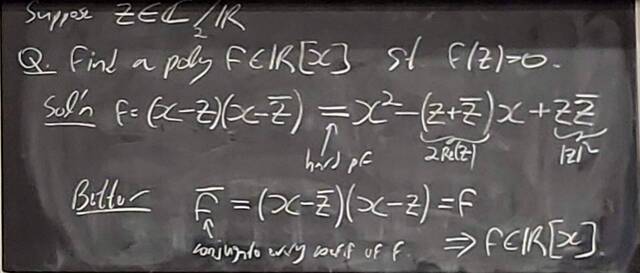 Suppose z∈ℂ\ℝ
Q. Find a poly f∈ℝ[x] st f(z)=0.
Sol'n f=(x-z)(x-z̄) = x²-(z+z̄)x+zz̄
hard pf 2Re(z) |z|²
Better f̄ = (x-z̄)(x-z) = f
conjugate every coeff of f. ⇒ f∈ℝ[x].